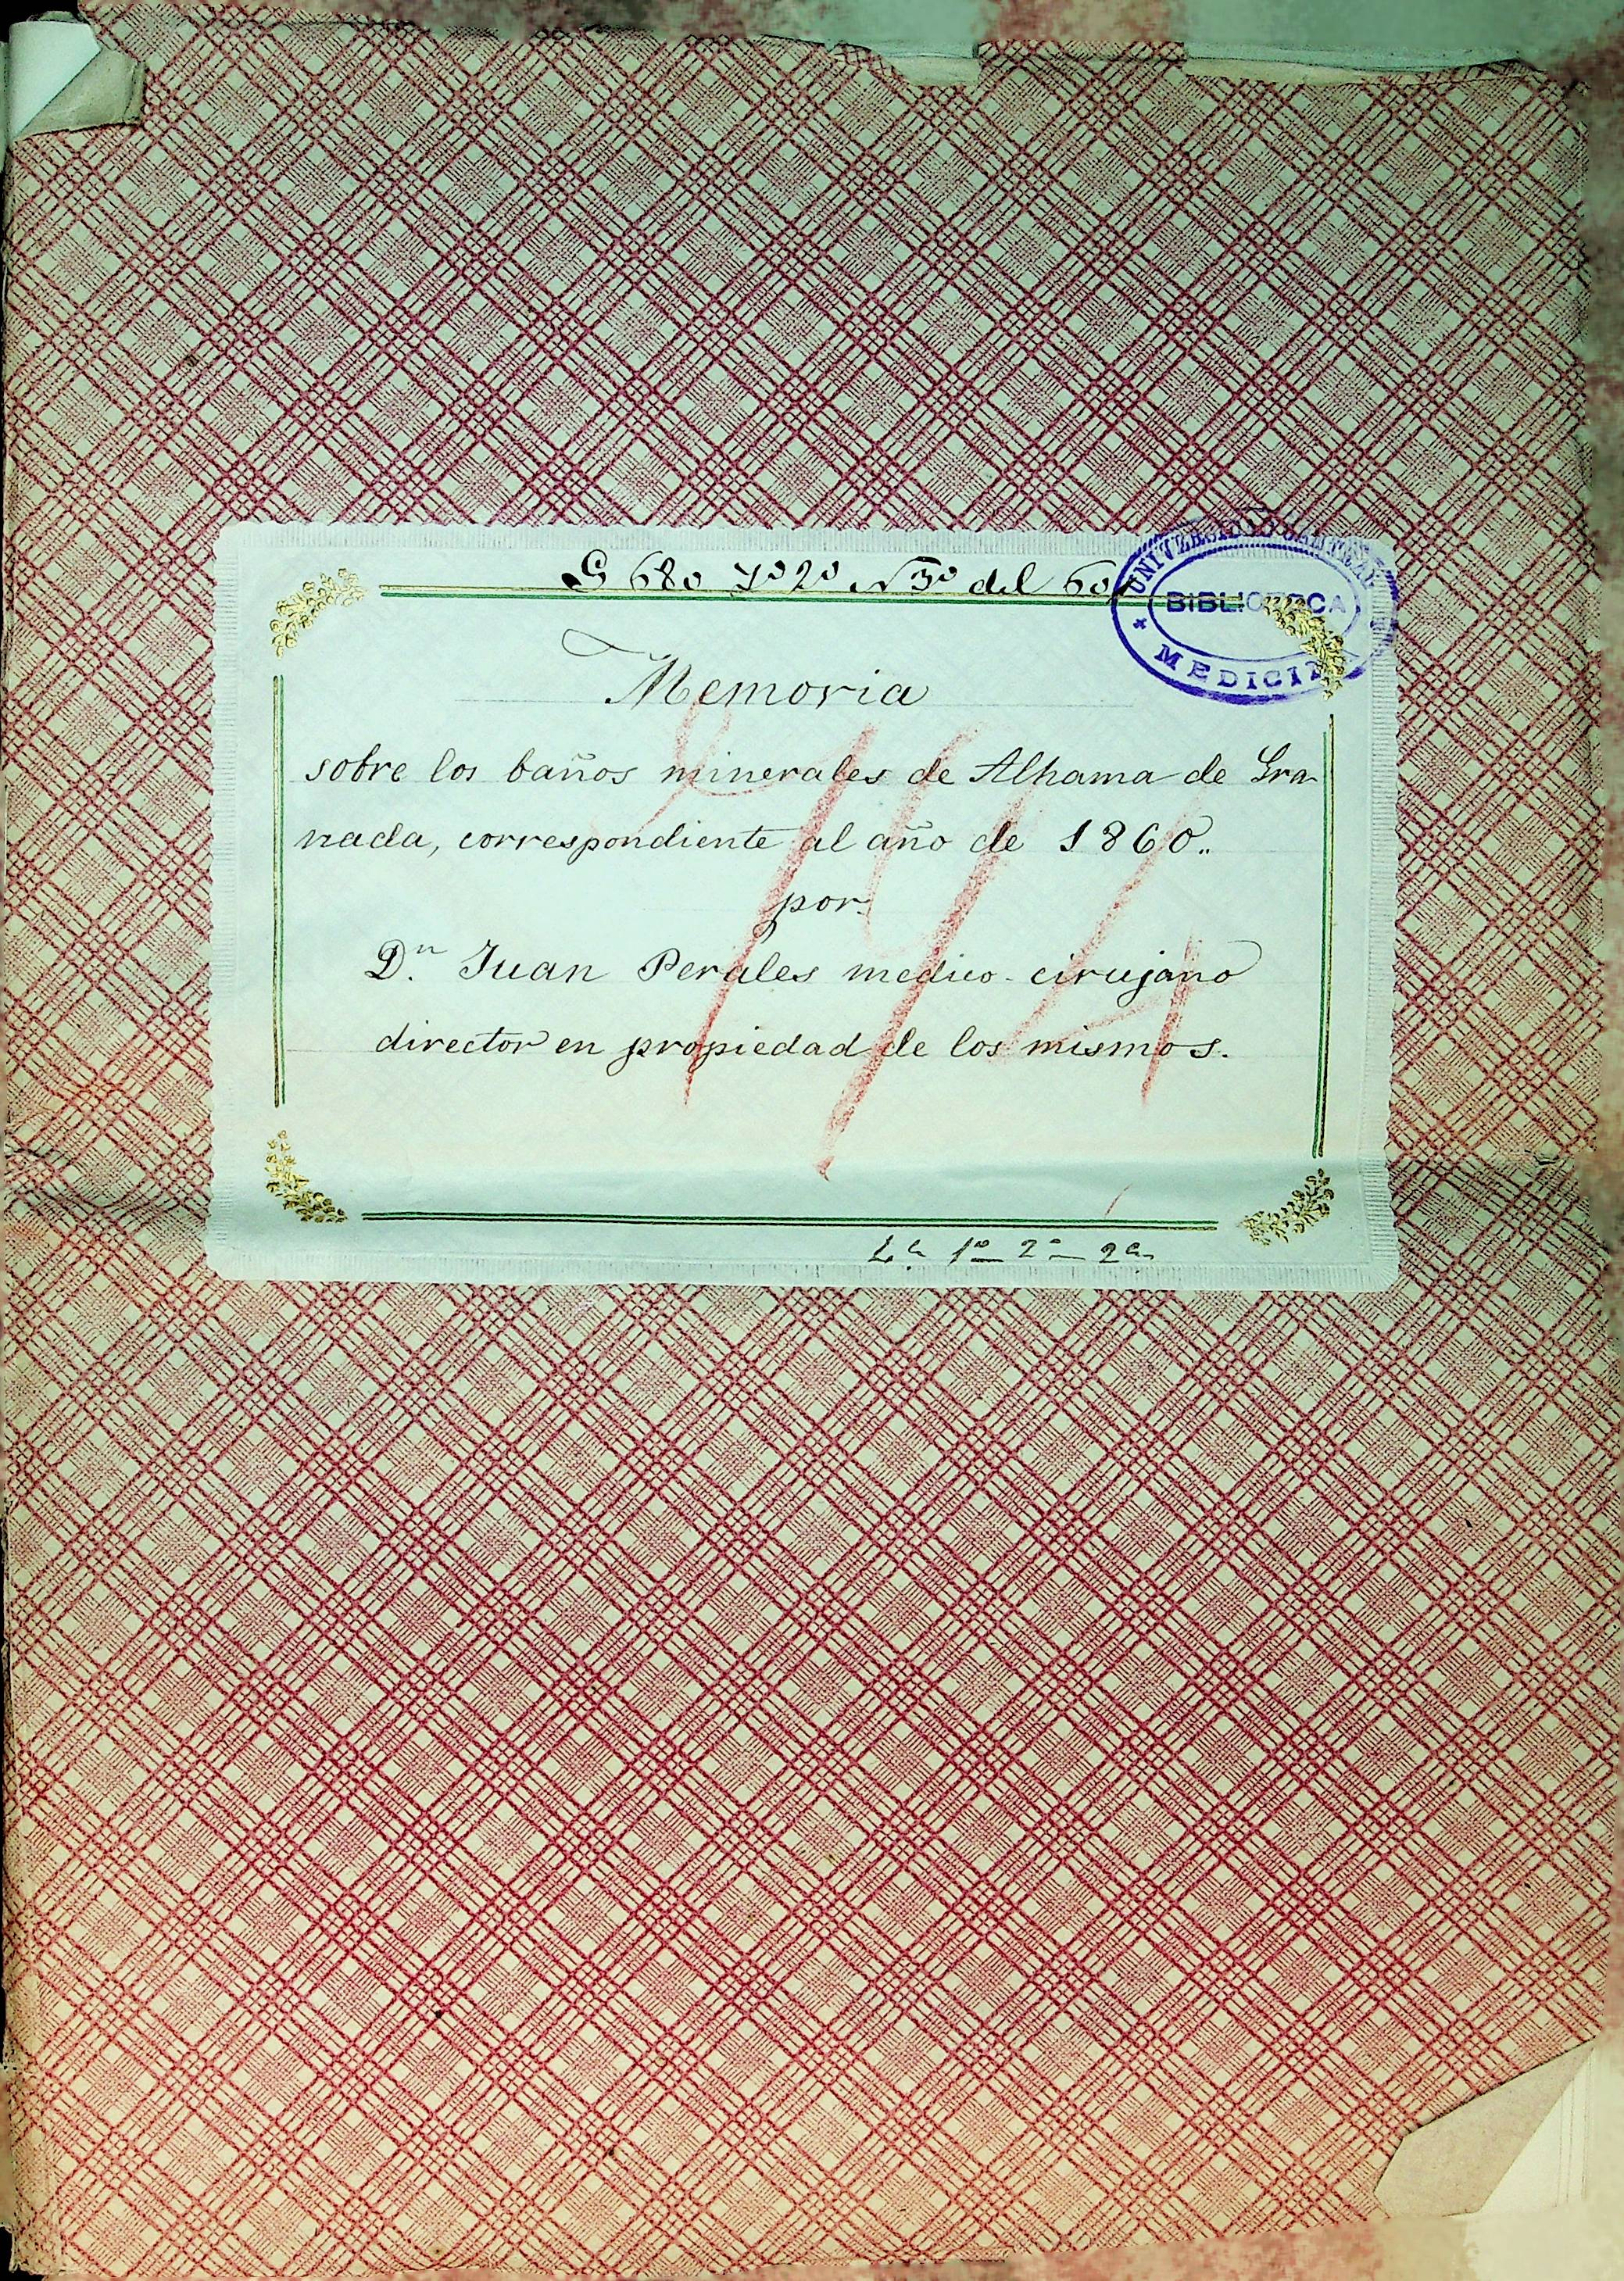 G 680 del 60
UNIVERSIDAD CENTRAL
BIBLIOTECA
MEDICINA
Memoria
sobre los baños minerales de Alhama de Gra-
nada, correspondiente al año de 1860..
por
Dn. Juan Perales medico-cirujano
director en propiedad de los mismos.